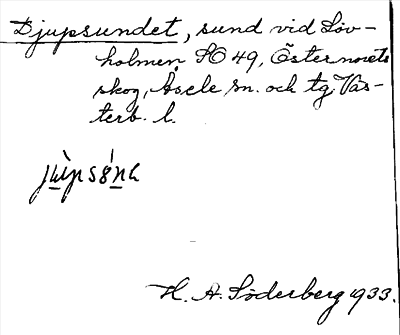 Djupsundet, sund vid Löv-
holmen SO 49, Östernorets
skog, Åsele sn. och tg. Väs-
terb. l.
H. A. Söderberg 1933.